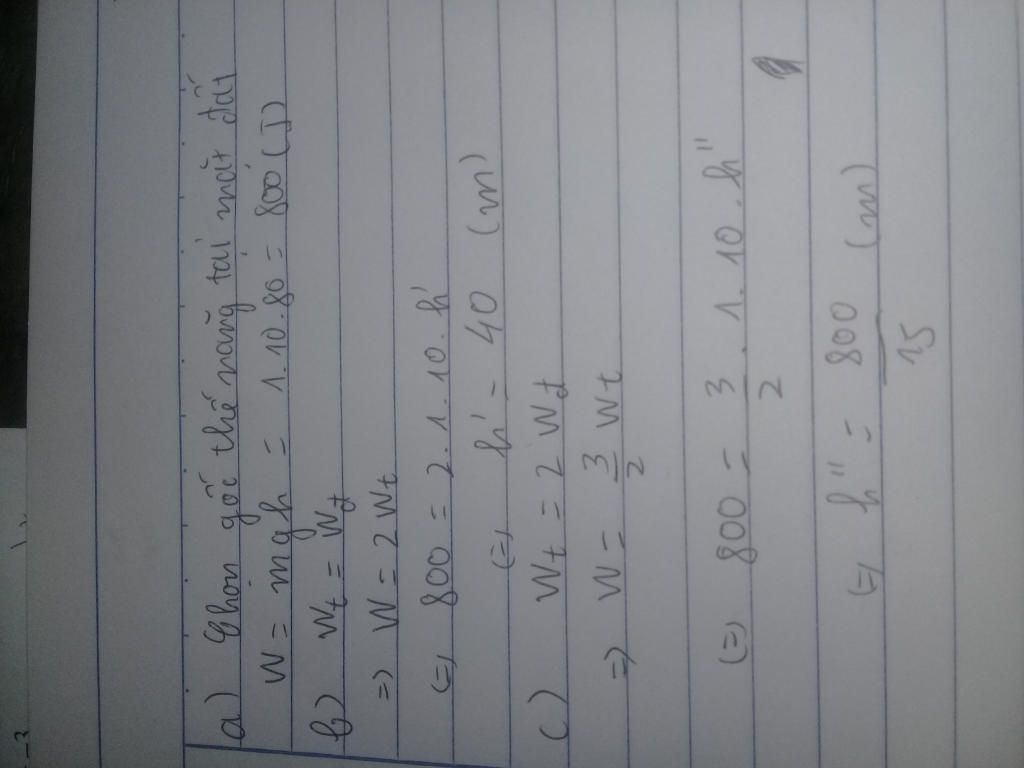 a) Chọn gốc thế năng tại mặt đất
W = mgh = 1.10.80 = 800 (J)
b) Wt = Wđ
=> W = 2 Wt
(=) 800 = 2.1.10.h'
(=) h' = 40 (m)
c) Wt = 2 Wđ
=> W = 3/2 Wt
(=) 800 = 3/2 . 1.10.h''
(=) h'' = 800/15 (m)